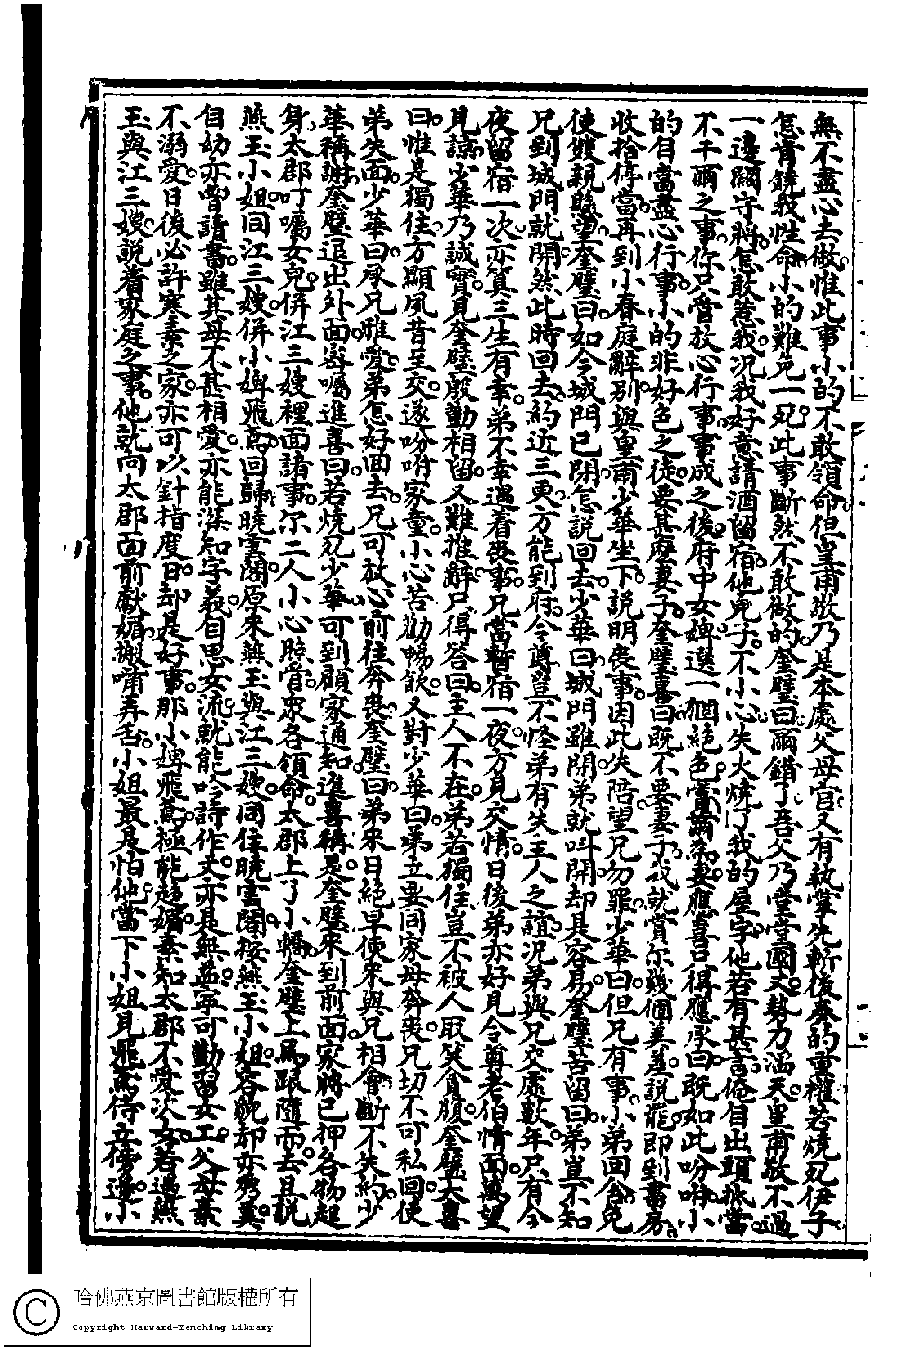 無不盡心去做惟此事小的不敢領命但皇甫敬乃是本處父母官又有執掌先斬後奏的重權若燒死伊子
怎肯饒我性命小的難免一死此事斷然不敢做的奎璧曰爾錯了吾父乃堂堂國丈勢力滔天皇甫敬不過
一邊關守將怎敢惹我况我好意請酒留宿他兒子不小心失火燒了我的屋宇他若有甚言俺自出頭抵當
不干爾之事你只管放心行事事成之後府中女婢選一個絕色賞爾為妻應喜只得應承曰既如此吩咐小
的自當盡心行事小的非好色之徒要甚麽妻子奎璧喜曰既不要妻子我就賞尔幾個美差說罷即到書房
收拾停當再到小春庭辭别與皇甫少華坐下說明喪事因此失陪望兄勿罪少華曰但兄有事小弟回舍免
使雙親懸望奎璧曰如今城門已閉怎說回去少華曰城門雖閉弟就叫開却是容易奎璧苦留曰弟豈不知
兄到城門就開然此時回去約近三更方能到府令尊豈不怪弟有失主人之誼况弟與兄交處數年只有今
夜留宿一次亦算三生有幸弟不幸遇着喪事兄當暫宿一夜方見交情日後弟亦好見令尊老伯情面萬望
見諒少華乃誠實見奎璧殷勤相留又難推辭只得答曰主人不在弟若獨住豈不被人取笑貪腹奎璧大喜
曰惟是獨住方顯夙昔至交遂吩咐家童小心苦勸暢飲又對少華曰弟立要同家母奔喪兄切不可私回使
弟失面少華曰承兄雅愛弟怎好回去兄可放心前往奔喪奎璧曰弟來日絕早使來與兄相會斷不失約少
華稱謝奎璧退出外面密囑進喜曰若燒死少華可到顧家通知進喜稱是奎璧來到前面家將已押各物起
身太郡叮囑女兒併江三嫂裡面諸事尔二人小心照管衆各領命太郡上了小轎奎璧上馬跟隨而去且說
燕玉小姐同江三嫂併小婢飛高回歸曉雲閣原來燕玉與江三嫂同住曉雲閣按燕玉小姐容貌却亦秀美
自幼亦曾讀書雖其母不甚相愛亦能深知字義自思女流就能吟詩作文亦是無益寧可勤習女工父母素
不溺愛日後必許寒素之家亦可以針指度日却是好事那小婢飛高極能趨媚素知太郡不愛次女若遇燕
玉與江三嫂說着家庭之事他就向太郡面前獻媚搬嘴弄舌小姐最是怕他當下小姐見飛高侍立傍邊小
哈佛燕京圖書館版權所有
Copyright Harvard-Yenching Library